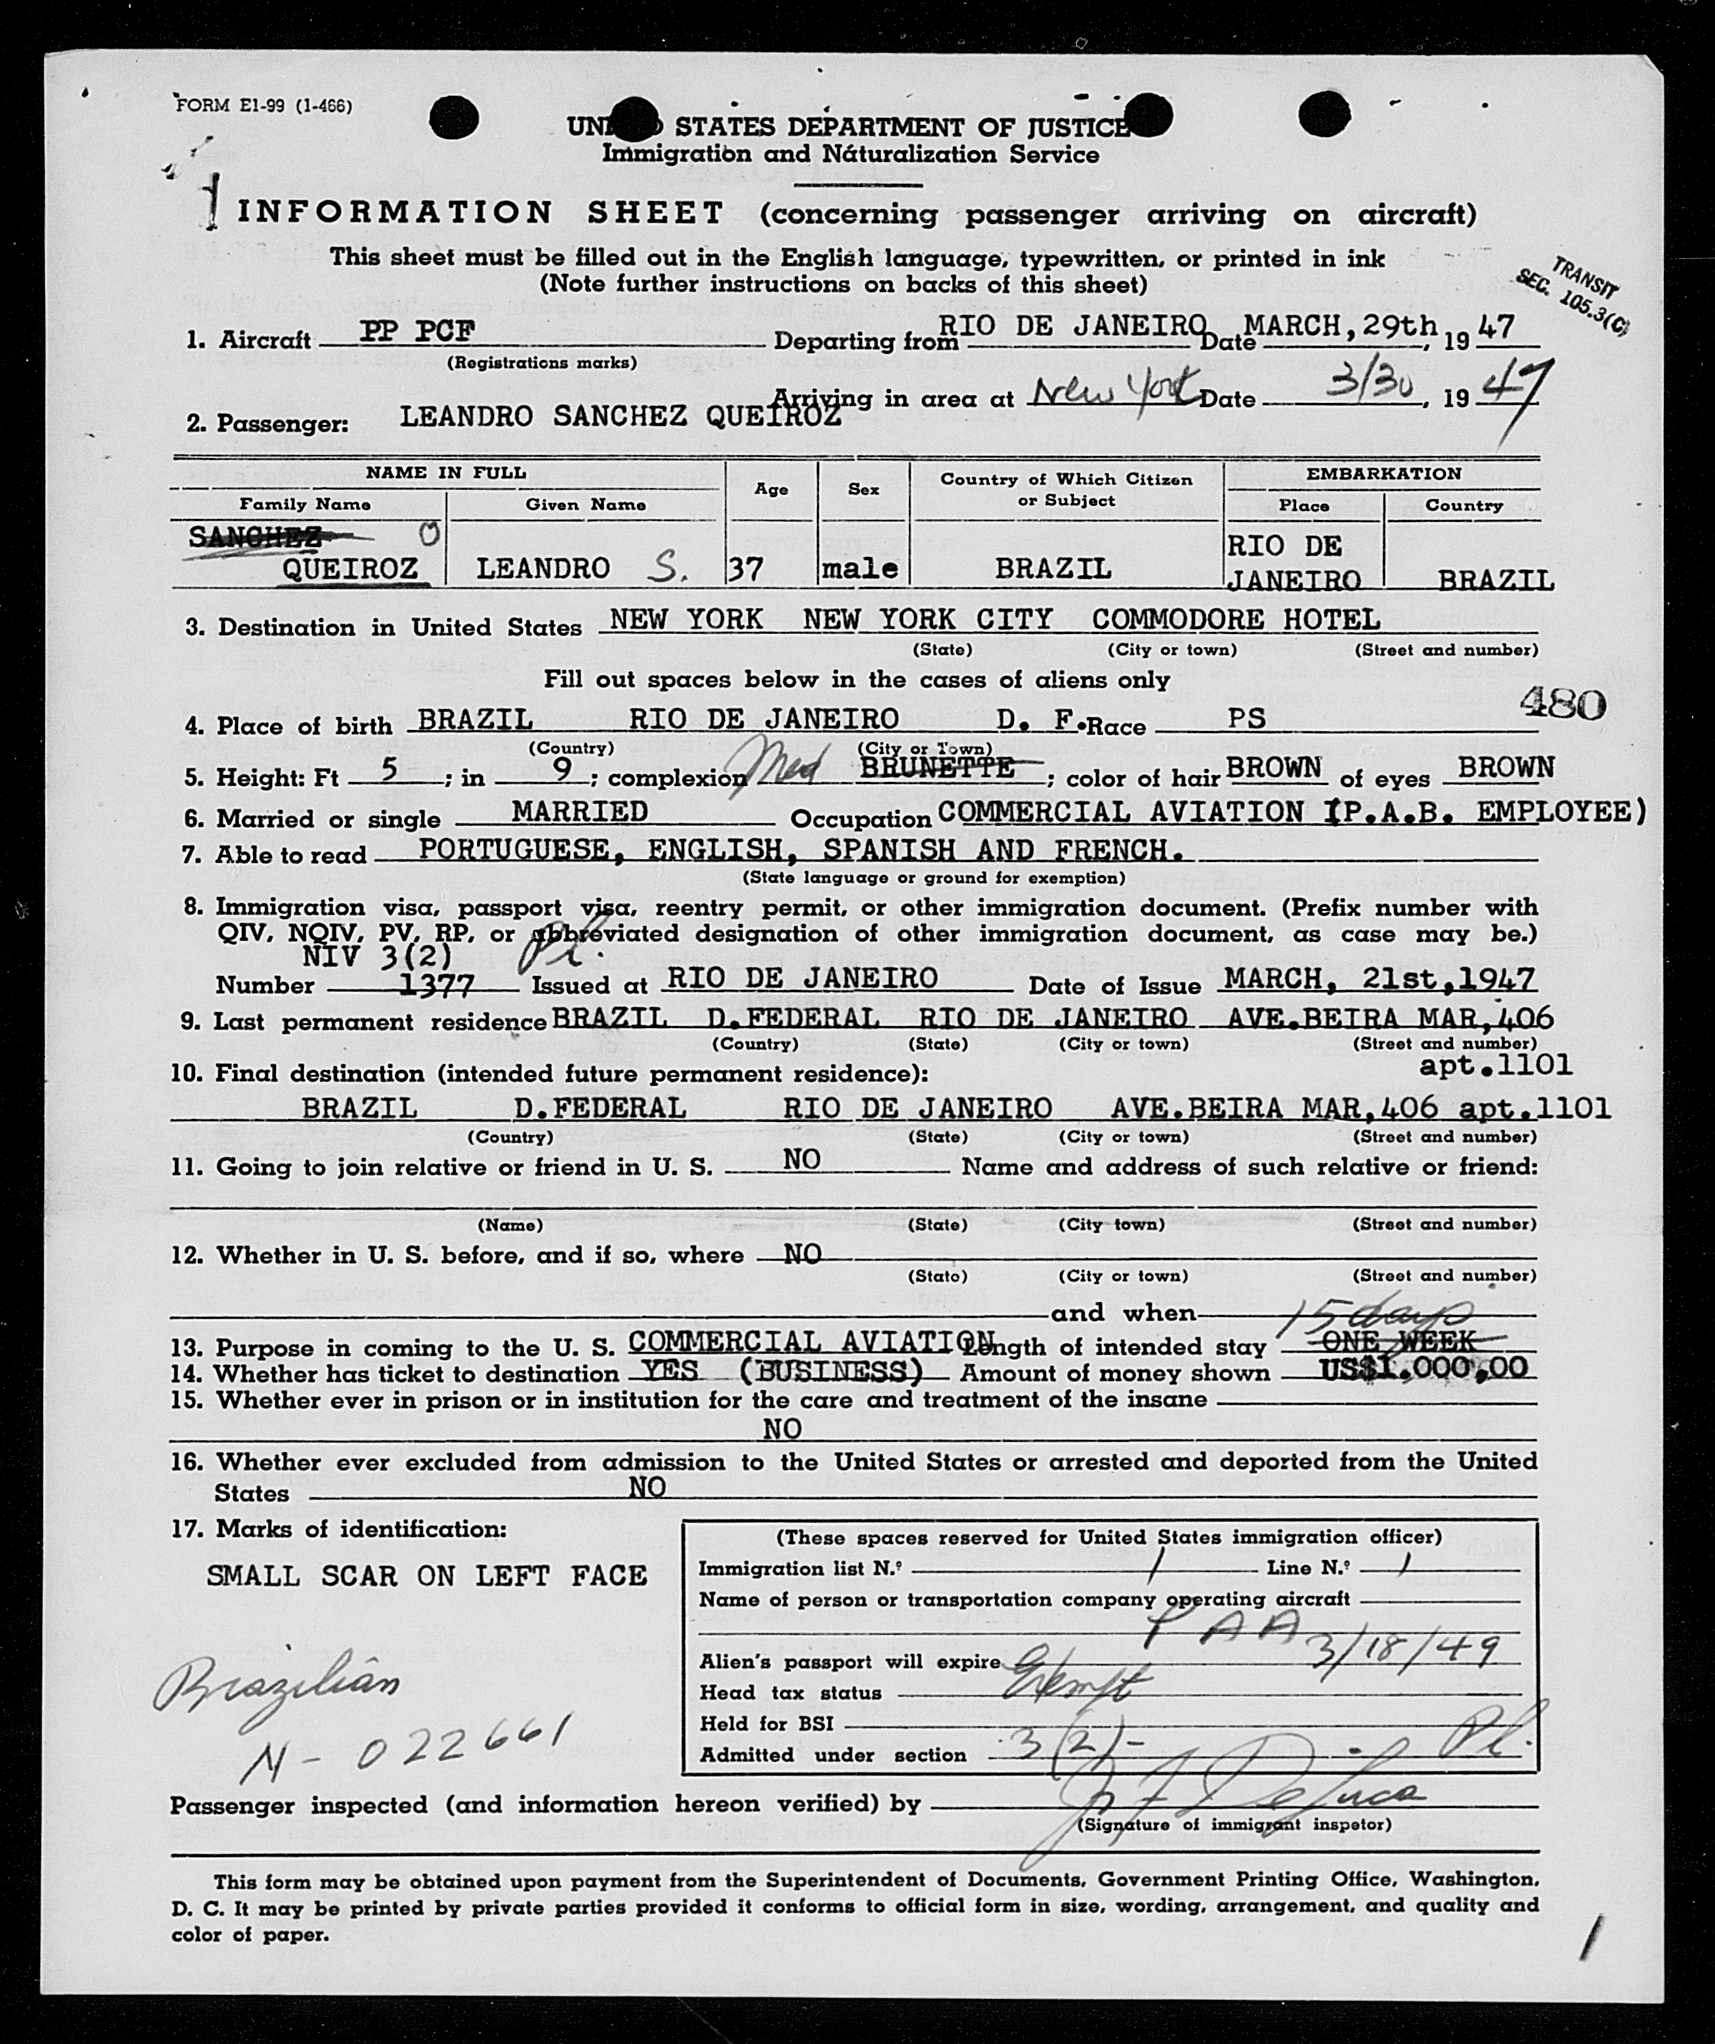 FORM E1-99 (1-466)
STATES DEPARTMENT OF JUSTICE
Immigration and Naturalization Service
INFORMATION SHEET (concerning passenger arriving on aircraft)
This sheet must be filled out in the English language, typewritten, or printed in ink
(Note further instructions on backs of this sheet)
TRANSIT
SEC. 105.3(C)
1. Aircraft PP PCF Departing from RIO DE JANEIRO Date MARCH, 29th, 1947
(Registrations marks)
Arriving in area at New York Date 3/30, 1947
2. Passenger: LEANDRO SANCHEZ QUEIROZ
NAME IN FULL Age Sex Country of Which Citizen or Subject EMBARKATION
Family Name Given Name Place Country
SANCHEZ O RIO DE
QUEIROZ LEANDRO S. 37 male BRAZIL JANEIRO BRAZIL
3. Destination in United States NEW YORK NEW YORK CITY COMMODORE HOTEL
(State) (City or town) (Street and number)
Fill out spaces below in the cases of aliens only
480
4. Place of birth BRAZIL RIO DE JANEIRO D. F. Race PS
(Country) (City or Town)
5. Height: Ft 5; in 9; complexion Med BRUNETTE; color of hair BROWN of eyes BROWN
6. Married or single MARRIED Occupation COMMERCIAL AVIATION (P.A.B. EMPLOYEE)
7. Able to read PORTUGUESE, ENGLISH, SPANISH AND FRENCH.
(State language or ground for exemption)
8. Immigration visa, passport visa, reentry permit, or other immigration document. (Prefix number with
QIV, NQIV, PV, RP, or abbreviated designation of other immigration document, as case may be.)
NIV 3(2) Pl.
Number 1377 Issued at RIO DE JANEIRO Date of Issue MARCH, 21st,1947
9. Last permanent residence BRAZIL D.FEDERAL RIO DE JANEIRO AVE.BEIRA MAR,406
(Country) (State) (City or town) (Street and number)
apt.1101
10. Final destination (intended future permanent residence):
BRAZIL D.FEDERAL RIO DE JANEIRO AVE.BEIRA MAR,406 apt.1101
(Country) (State) (City or town) (Street and number)
11. Going to join relative or friend in U. S. NO Name and address of such relative or friend:
(Name) (State) (City town) (Street and number)
12. Whether in U. S. before, and if so, where NO
(State) (City or town) (Street and number)
and when
15 days
13. Purpose in coming to the U. S. COMMERCIAL AVIATION Length of intended stay ONE WEEK
14. Whether has ticket to destination YES (BUSINESS) Amount of money shown US$1.000,00
15. Whether ever in prison or in institution for the care and treatment of the insane
NO
16. Whether ever excluded from admission to the United States or arrested and deported from the United
States NO
17. Marks of identification:
SMALL SCAR ON LEFT FACE
Brazilian
N-022661
(These spaces reserved for United States immigration officer)
Immigration list N.º 1 Line N.º 1
Name of person or transportation company operating aircraft
PAA
Alien's passport will expire 3/18/49
Head tax status Exempt
Held for BSI
Admitted under section 3(2)- Pl.
Passenger inspected (and information hereon verified) by J. F. DeLuca
(Signature of immigrant inspetor)
This form may be obtained upon payment from the Superintendent of Documents, Government Printing Office, Washington,
D. C. It may be printed by private parties provided it conforms to official form in size, wording, arrangement, and quality and
color of paper.
1